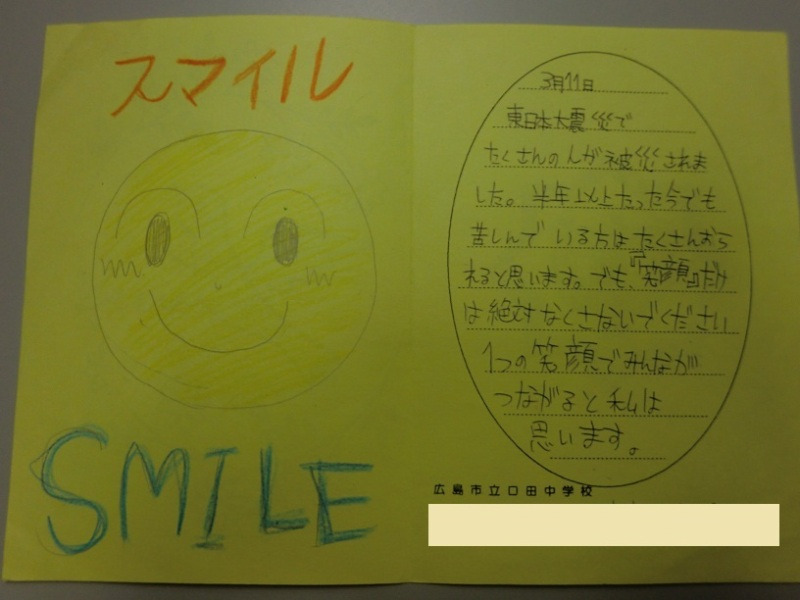 スマイル
SMILE
3月11日
東日本大震災で
たくさんの人が被災されま
した。半年以上たった今でも
苦しんでいる方はたくさんおら
れると思います。でも、『笑顔』だけ
は絶対なくさないでください
1つの笑顔でみんなが
つながると私は
思います。
広島市立口田中学校